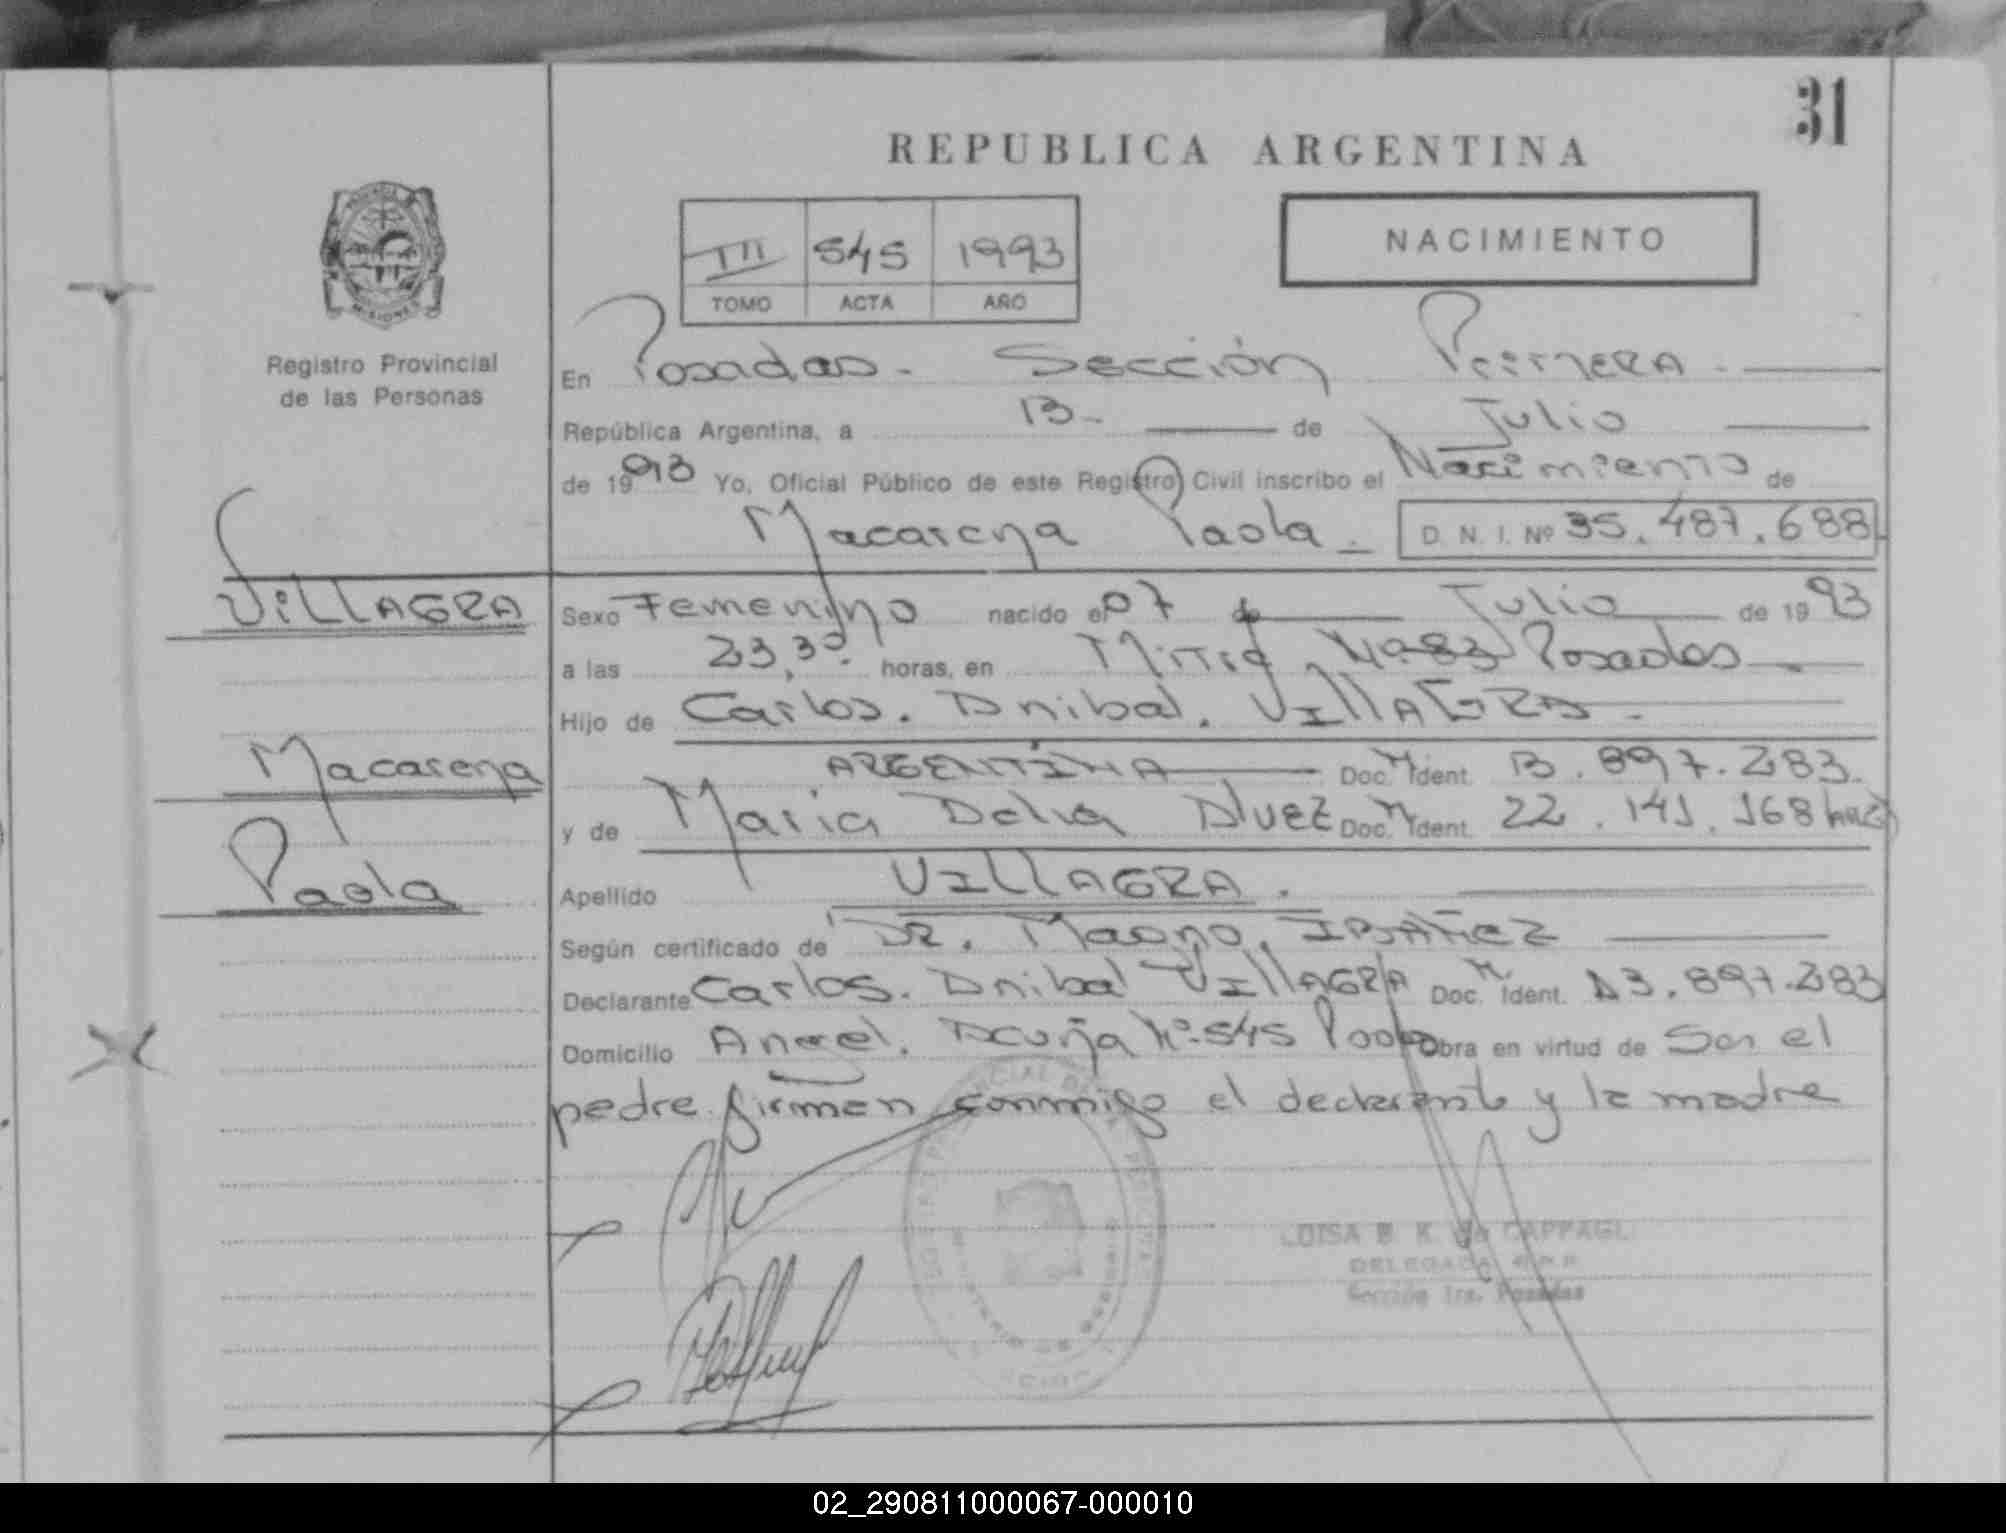 31
REPUBLICA ARGENTINA
III 545 1993
TOMO ACTA AÑO
NACIMIENTO
PROVINCIA DE
MISIONES
Registro Provincial
de las Personas
En Posadas. Sección Primera.
República Argentina, a 13 de Julio
de 1993 Yo, Oficial Público de este Registro Civil inscribo el Nacimiento de
Macarena Paola. D. N. I. Nº 35.487.688
VILLAGRA
Macarena
Paola
Sexo Femenino nacido el 07 de Julio de 1993
a las 23,30. horas, en Nº 83 Posadas
Hijo de Carlos. Anibal. VILLAGRA.
ARGENTINA Doc. N. Ident. 13.897.283.
y de Maria Delia Alvez Doc. N. Ident. 22.141.168
Apellido VILLAGRA.
Según certificado de DR. Magno. IBAÑEZ
Declarante Carlos. Anibal VILLAGRA Doc. N. Ident. 13.897.283
Domicilio Angel. Acuña Nº 545 Obra en virtud de Ser el
padre. firman conmigo el declarante y la madre
LUISA B. K. de CAPPAGLI
DELEGADA R.P.P.
Sección 1ra. Posadas
02_290811000067-000010